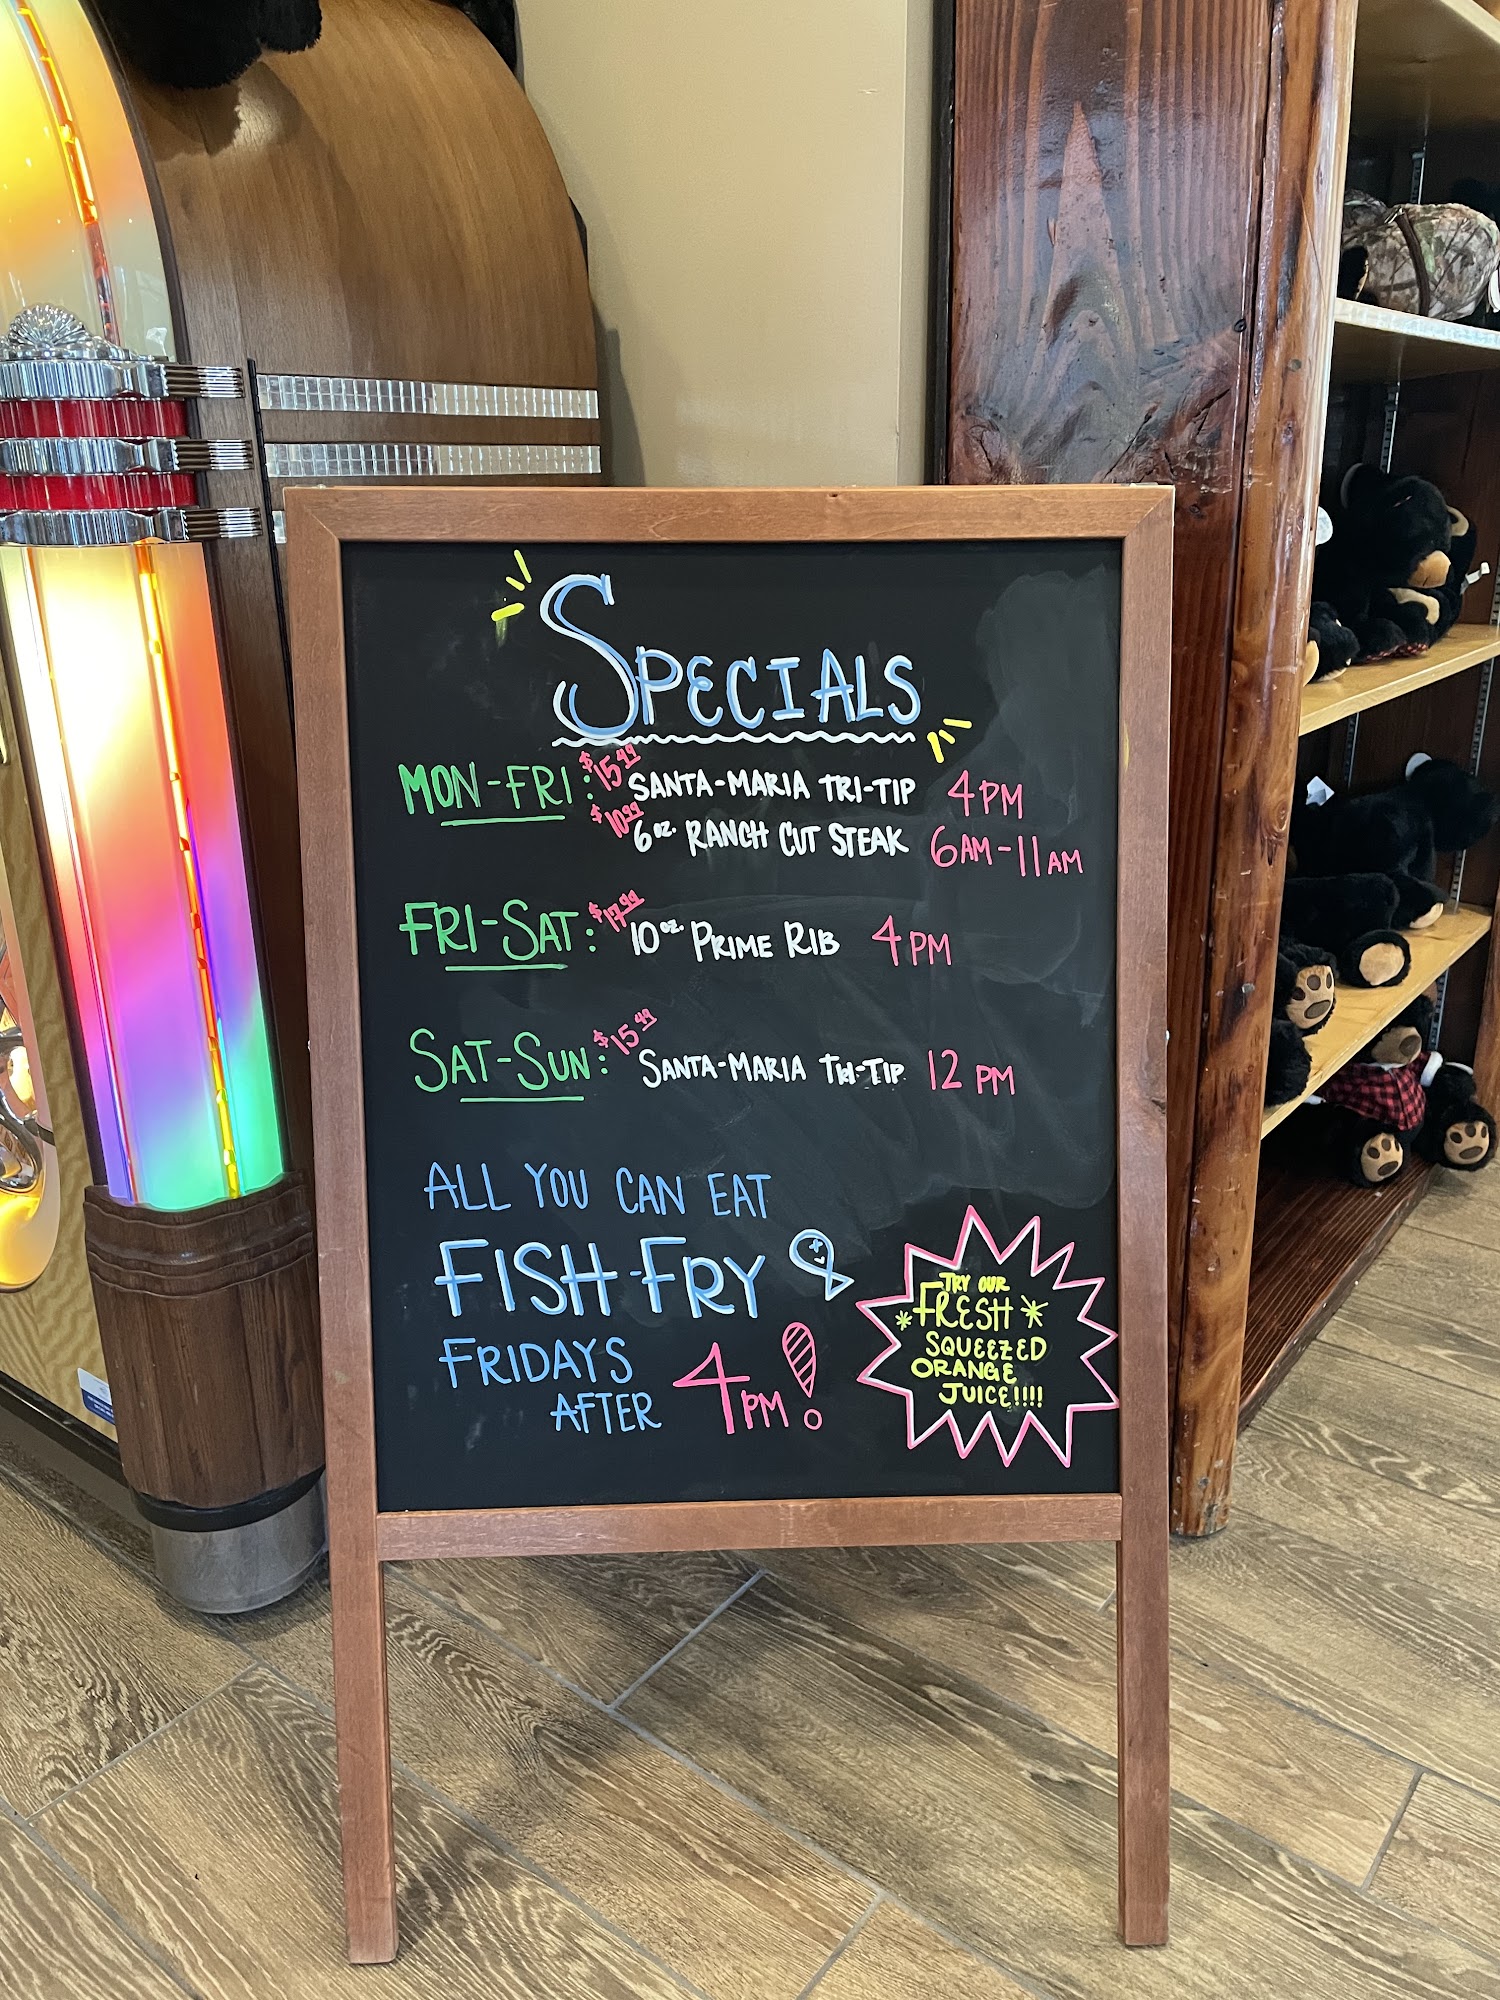 SPECIALS
MON-FRI: $15.49 SANTA-MARIA TRI-TIP 4PM
$10.99 6oz. RANCH CUT STEAK 6AM-11AM
FRI-SAT: $17.99 10oz. PRIME RIB 4PM
SAT-SUN: $15.49 SANTA-MARIA TRI-TIP 12 PM
ALL YOU CAN EAT
FISH-FRY
FRIDAYS
AFTER 4PM!
TRY OUR
*FRESH*
SQUEEZED
ORANGE
JUICE!!!!